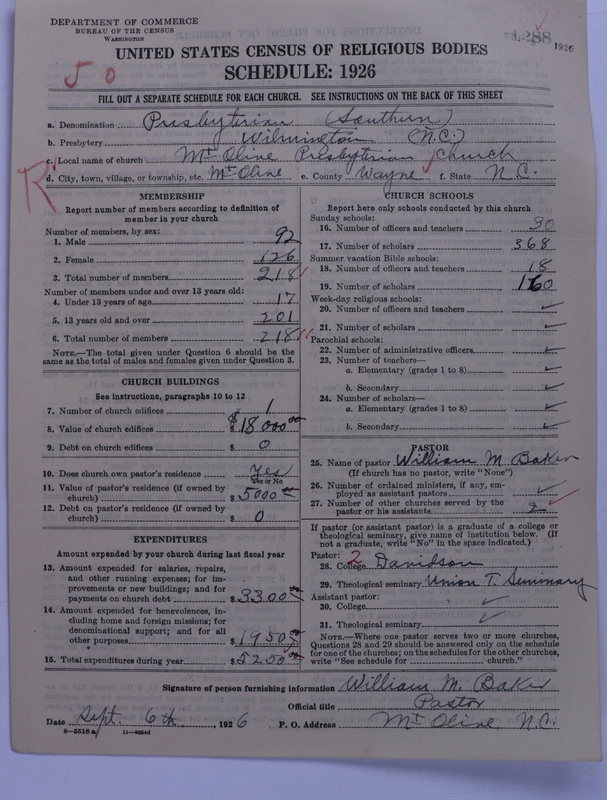 DEPARTMENT OF COMMERCE
BUREAU OF THE CENSUS
WASHINGTON
1926
UNITED STATES CENSUS OF RELIGIOUS BODIES
SCHEDULE: 1926
50
FILL OUT A SEPARATE SCHEDULE FOR EACH CHURCH. SEE INSTRUCTIONS ON THE BACK OF THIS SHEET
a. Denomination Presbyterian (Southern)
b. Presbytery Wilmington (N.C.)
c. Local name of church Mt Olive Presbyterian Church
d. City, town, village, or township, etc. Mt Olive e. County Wayne f. State N.C.
R
MEMBERSHIP
Report number of members according to definition of
member in your church
Number of members, by sex:
1. Male 92
2. Female 126
3. Total number of members 218
Number of members under and over 13 years old:
4. Under 13 years of age 17
5. 13 years old and over 201
6. Total number of members 218
NOTE.—The total given under Question 6 should be the
same as the total of males and females given under Question 3.
CHURCH BUILDINGS
See instructions, paragraphs 10 to 12
7. Number of church edifices 1
8. Value of church edifices $18000.00
9. Debt on church edifices $ 0
10. Does church own pastor's residence Yes
Yes or No
11. Value of pastor's residence (if owned by
church) $5000
12. Debt on pastor's residence (if owned by
church) $ 0
EXPENDITURES
Amount expended by church during last fiscal year
13. Amount expended for salaries, repairs,
and other running expenses; for im-
provements or new buildings; and for
payments on church debt $3300.00
14. Amount expended for benevolences, in-
cluding home and foreign missions; for
denominational support; and for all
other purposes $1950
15. Total expenditures during year $5250.00
CHURCH SCHOOLS
Report here only schools conducted by this church
Sunday schools:
16. Number of officers and teachers 30
17. Number of scholars 368
Summer vacation Bible schools:
18. Number of officers and teachers 18
19. Number of scholars 160
Week-day religious schools:
20. Number of officers and teachers
21. Number of scholars
Parochial schools:
22. Number of administrative officers
23. Number of teachers—
a. Elementary (grades 1 to 8)
b. Secondary
24. Number of scholars—
a. Elementary (grades 1 to 8)
b. Secondary
PASTOR
25. Name of pastor William M Baker
(If church has no pastor, write "None")
26. Number of ordained ministers, if any, em-
ployed as assistant pastors
27. Number of other churches served by the
pastor or his assistants 2
If pastor (or assistant pastor) is a graduate of a college or
theological seminary, give name of institution below. (If
not a graduate, write "No" in the space indicated.)
Pastor: 2
28. College Davidson
29. Theological seminary Union T. Seminary
Assistant pastor:
30. College
31. Theological seminary
NOTE.—Where one pastor serves two or more churches,
Questions 28 and 29 should be answered only on the schedule
for one of the churches; on the schedules for the other churches,
write "See schedule for church."
Signature of person furnishing information William M. Baker
Official title Pastor
Date Sept. 6th, 1926 P. O. Address Mt Olive N.C.
8—5518a